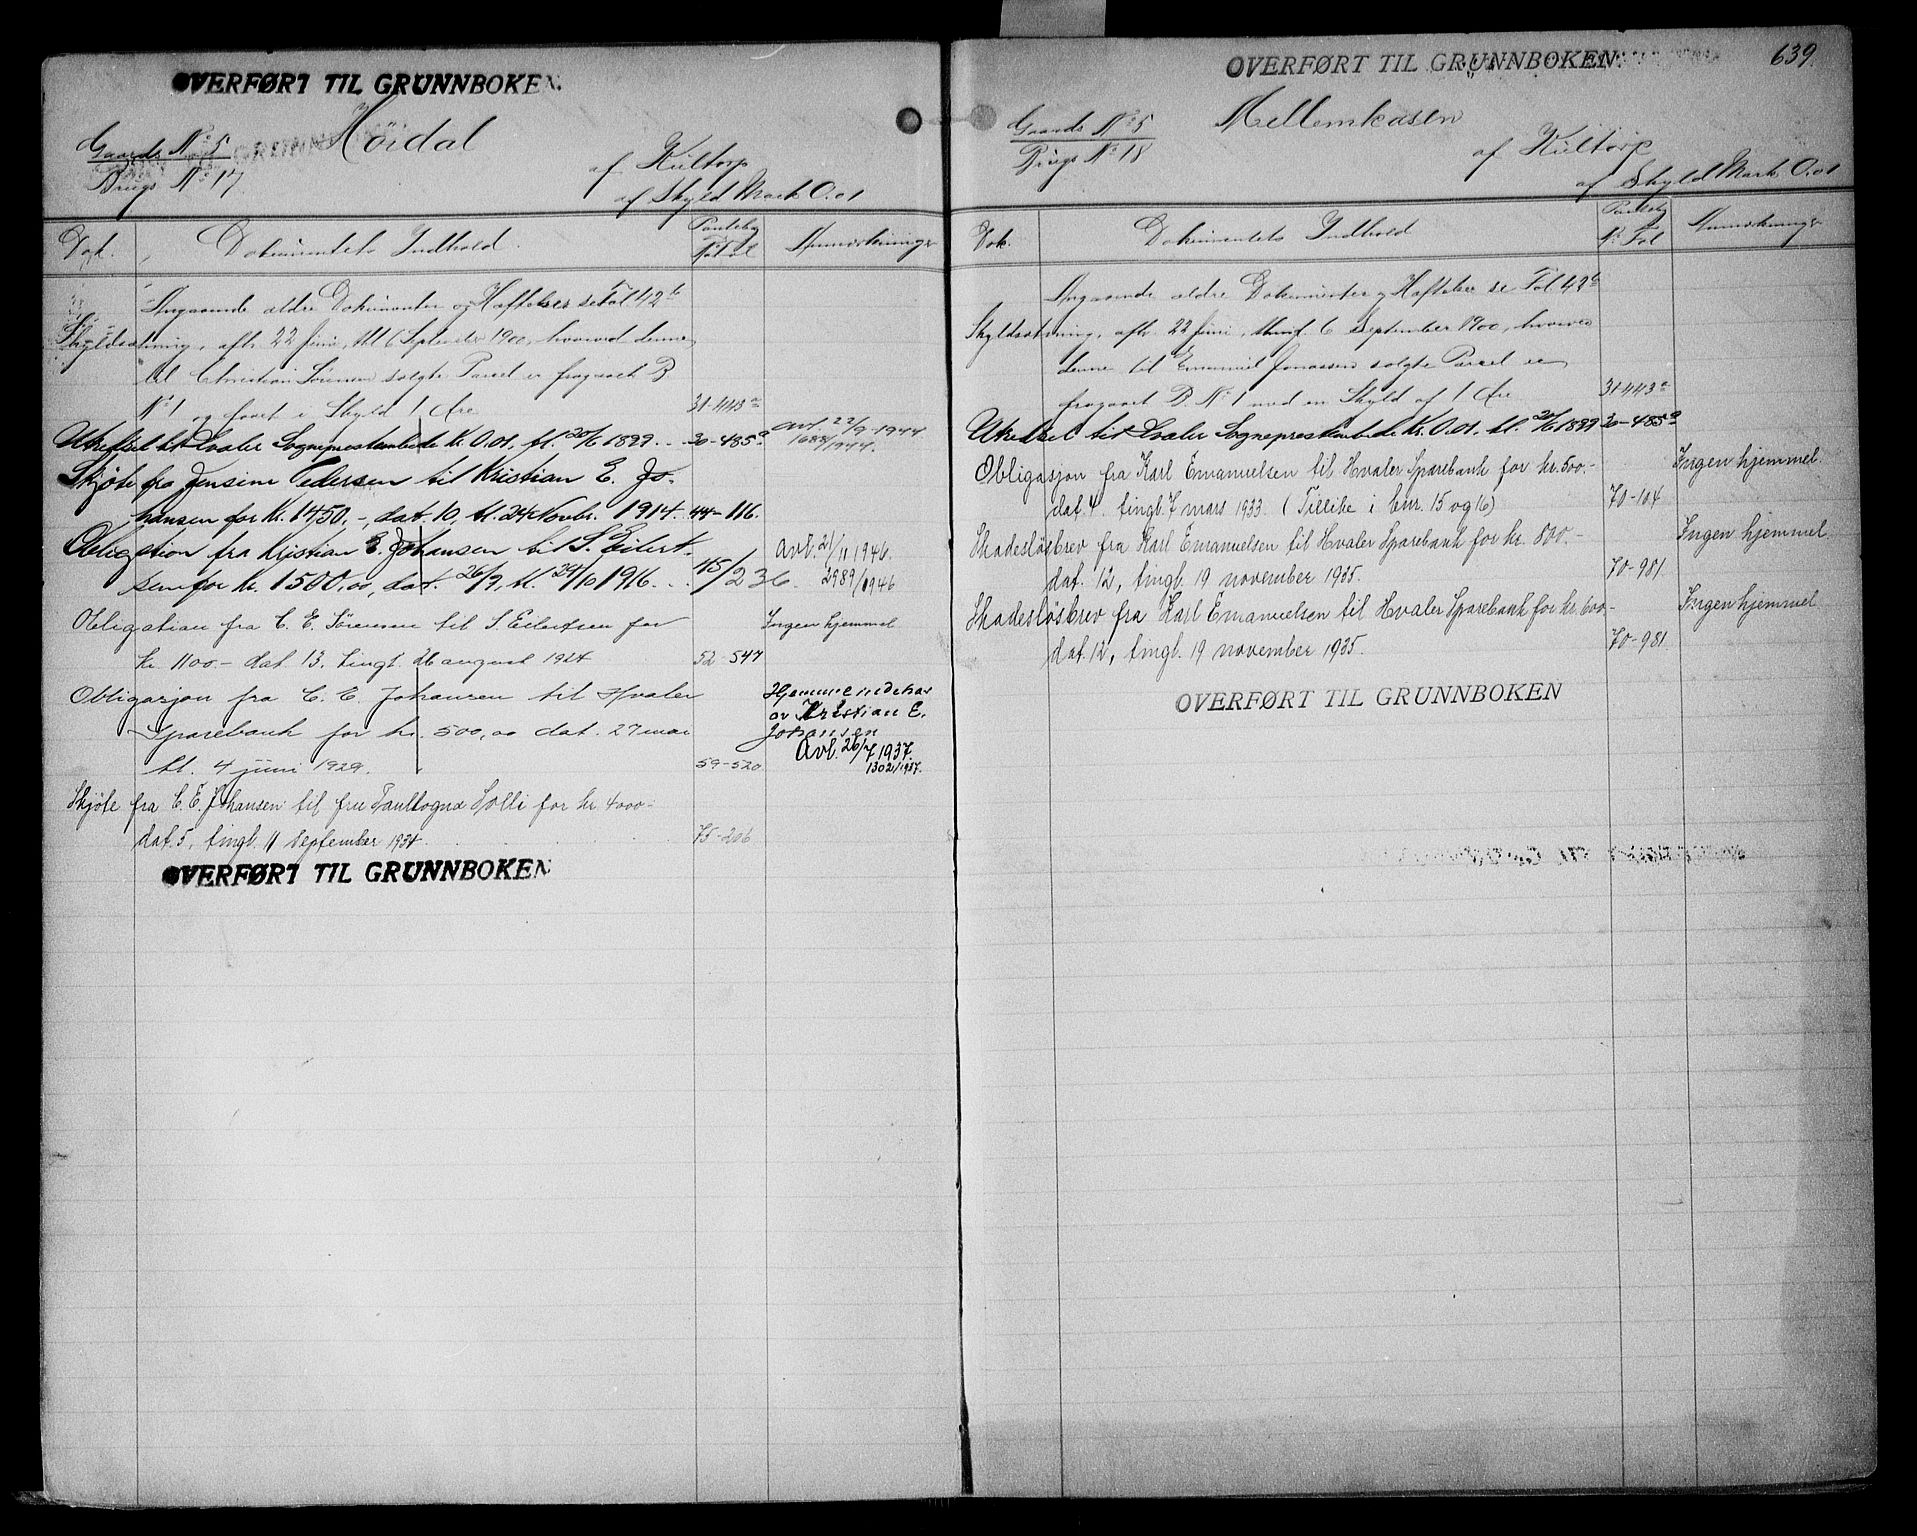 OVERFØRT TIL GRUNNBOKEN
Gaards No 5
Brugs No 17
Höidal
af Kiltorp
af Skyld Mark 0.01
Dat. Dokumentets Indhold. Pantebog No Fol Anmærkninger
Angaaende ældre Dokumenter og Hæftelser se Fol 42 b
Skyldsætning, afh. 22 Juni, thl 6 September 1900, hvorved denne
til Christian Sörensen solgte Parcel er fragaaet B
No 1 og faaet i Skyld 1 Øre 31-443 a
Utkedsel til Hvaler Sogneprestembede Kr. 0.01, tl. 20/6 1899. 30-485 a Avl. 22/9-1944
1688/1944.
Skjöte fra Jensine Pedersen til Kristian E. Jo-
hansen for Kr. 1450,-, dat. 10, tl. 24 Novbr. 1914. 44-116.
Obligation fra Kristian E. Johansen til S. Eilert-
sen for Kr. 1500,00, dat. 26/9, tl. 24/10 1916. 45/236 Avl. 21/11 1946.
2989/1946
Obligation fra C. E. Sörensen til S. Eilertsen for Ingen hjemmel
kr. 1100- dat 13, tingl. 26 august 1924 52-547
Obligasjon fra C. E. Johansen til Hvaler Hjemmelndehar
Sparebank for kr. 500,00 dat. 27 mai av Kristian E.
Johansen
tl. 4 juni 1929. 59-520 Avl. 26/7 1937.
1302/1937.
Skjöte fra C. E. Johansen til fru Solli for kr. 4000-
dat. 5, tingl. 11 September 1934 75-206
OVERFØRT TIL GRUNNBOKEN
OVERFØRT TIL GRUNNBOKEN
639
Gaards No 5
Brugs No 18
Mellemkasen
af Kiltorp
af Skyld Mark 0.01
Dok. Dokumentets Indhold Pantebog No Fol Anmærkninger
Angaaende ældre Dokumenter og Hæftelser se Fol 42 b
Skyldsætning, afh. 22 Juni, thingl. 6 September 1900, hvorved
denne til Emanuel Jonassen solgte Parcel er
fragaaet B. No 1 med en Skyld af 1 Øre 31-443 a
Utkedsel til Hvaler Sogneprestembede Kr. 0.01. tl. 20/6 1899 30-485 a
Obligasjon fra Karl Emanuelsen til Hvaler Sparebank for kr. 500,- Ingen hjemmel.
dat. 4, tingl. 7 mars 1933 (Tillike i bnr. 15 og 16) 70-104
Skadesløsbrev fra Karl Emanuelsen til Hvaler Sparebank for kr. 800,- Ingen hjemmel.
dat. 12, tingl. 19 november 1935. 70-981
Skadesløsbrev fra Karl Emanuelsen til Hvaler Sparebank for kr. 600- Ingen hjemmel
dat. 12, tingl. 19 november 1935. 70-981
OVERFØRT TIL GRUNNBOKEN